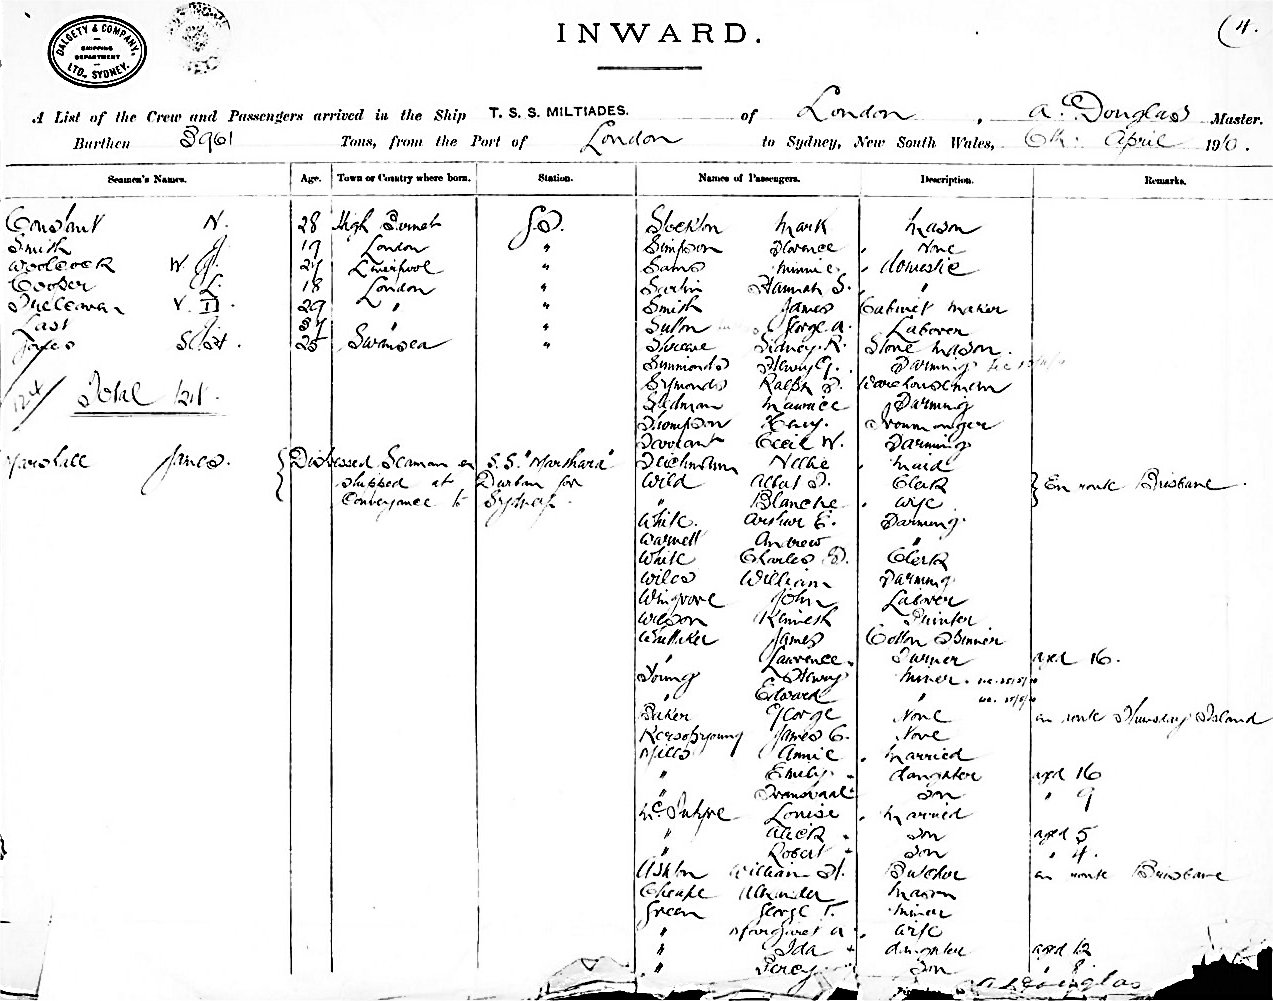 DALGETY & COMPANY, LTD., SYDNEY.
SHIPPING DEPARTMENT
(4.
INWARD.
A List of the Crew and Passengers arrived in the Ship T. S. S. MILTIADES. of London, A. Douglas Master.
Burthen Tons, from the Port of London to Sydney, New South Wales, 6th April 1910.
Seamen's Names. Age. Town or Country where born. Station. Names of Passengers. Description. Remarks.
Constant N. 28 High Barnet Stockton Mark Mason
Smith J. 19 London " Simpson Florence None
Woolcock W. J. 27 Liverpool " Sams Minnie Domestic
Cooper L. 18 London " Hannah S. "
V. 29 " " Smith James Cabinet Maker
Last " " Sutton George A. Laborer
25 Swansea " Sidney R. Stone Mason
Simmonds Henry G. Farming
Symonds Ralph Warehouseman
Stedman Maurice Farming
124 Total 121. Thompson Henry Ironmonger
Cecil W. Farming
Marshall James. Distressed Seaman ex S.S. " Nellie Maid
shipped at Durban for Wild Albert Clerk En route Brisbane
Conveyance to Sydney. " Blanche Wife
White Arthur E. Farming
Warnett Andrew "
White Charles Clerk
Wiles William Farming
Wingrove John Laborer
Wilson Kenneth Painter
Whittaker James Cotton Spinner
" Laurence Turner aged 16.
Young Henry Miner
" Edward "
Baker George None en route Thursday Island
James C. None
Mills Annie Married
" Emily daughter aged 16
" Transvaal Son " 9
McIntyre Louise Married
" Alick Son aged 5
" Robert Son " 4.
Ashton William H. Butcher en route Brisbane
Cheape Alexander Mason
Green George T. Miner
" Margaret A. Wife
" Ida daughter aged 12
" Percy Son " 8
A. Douglas